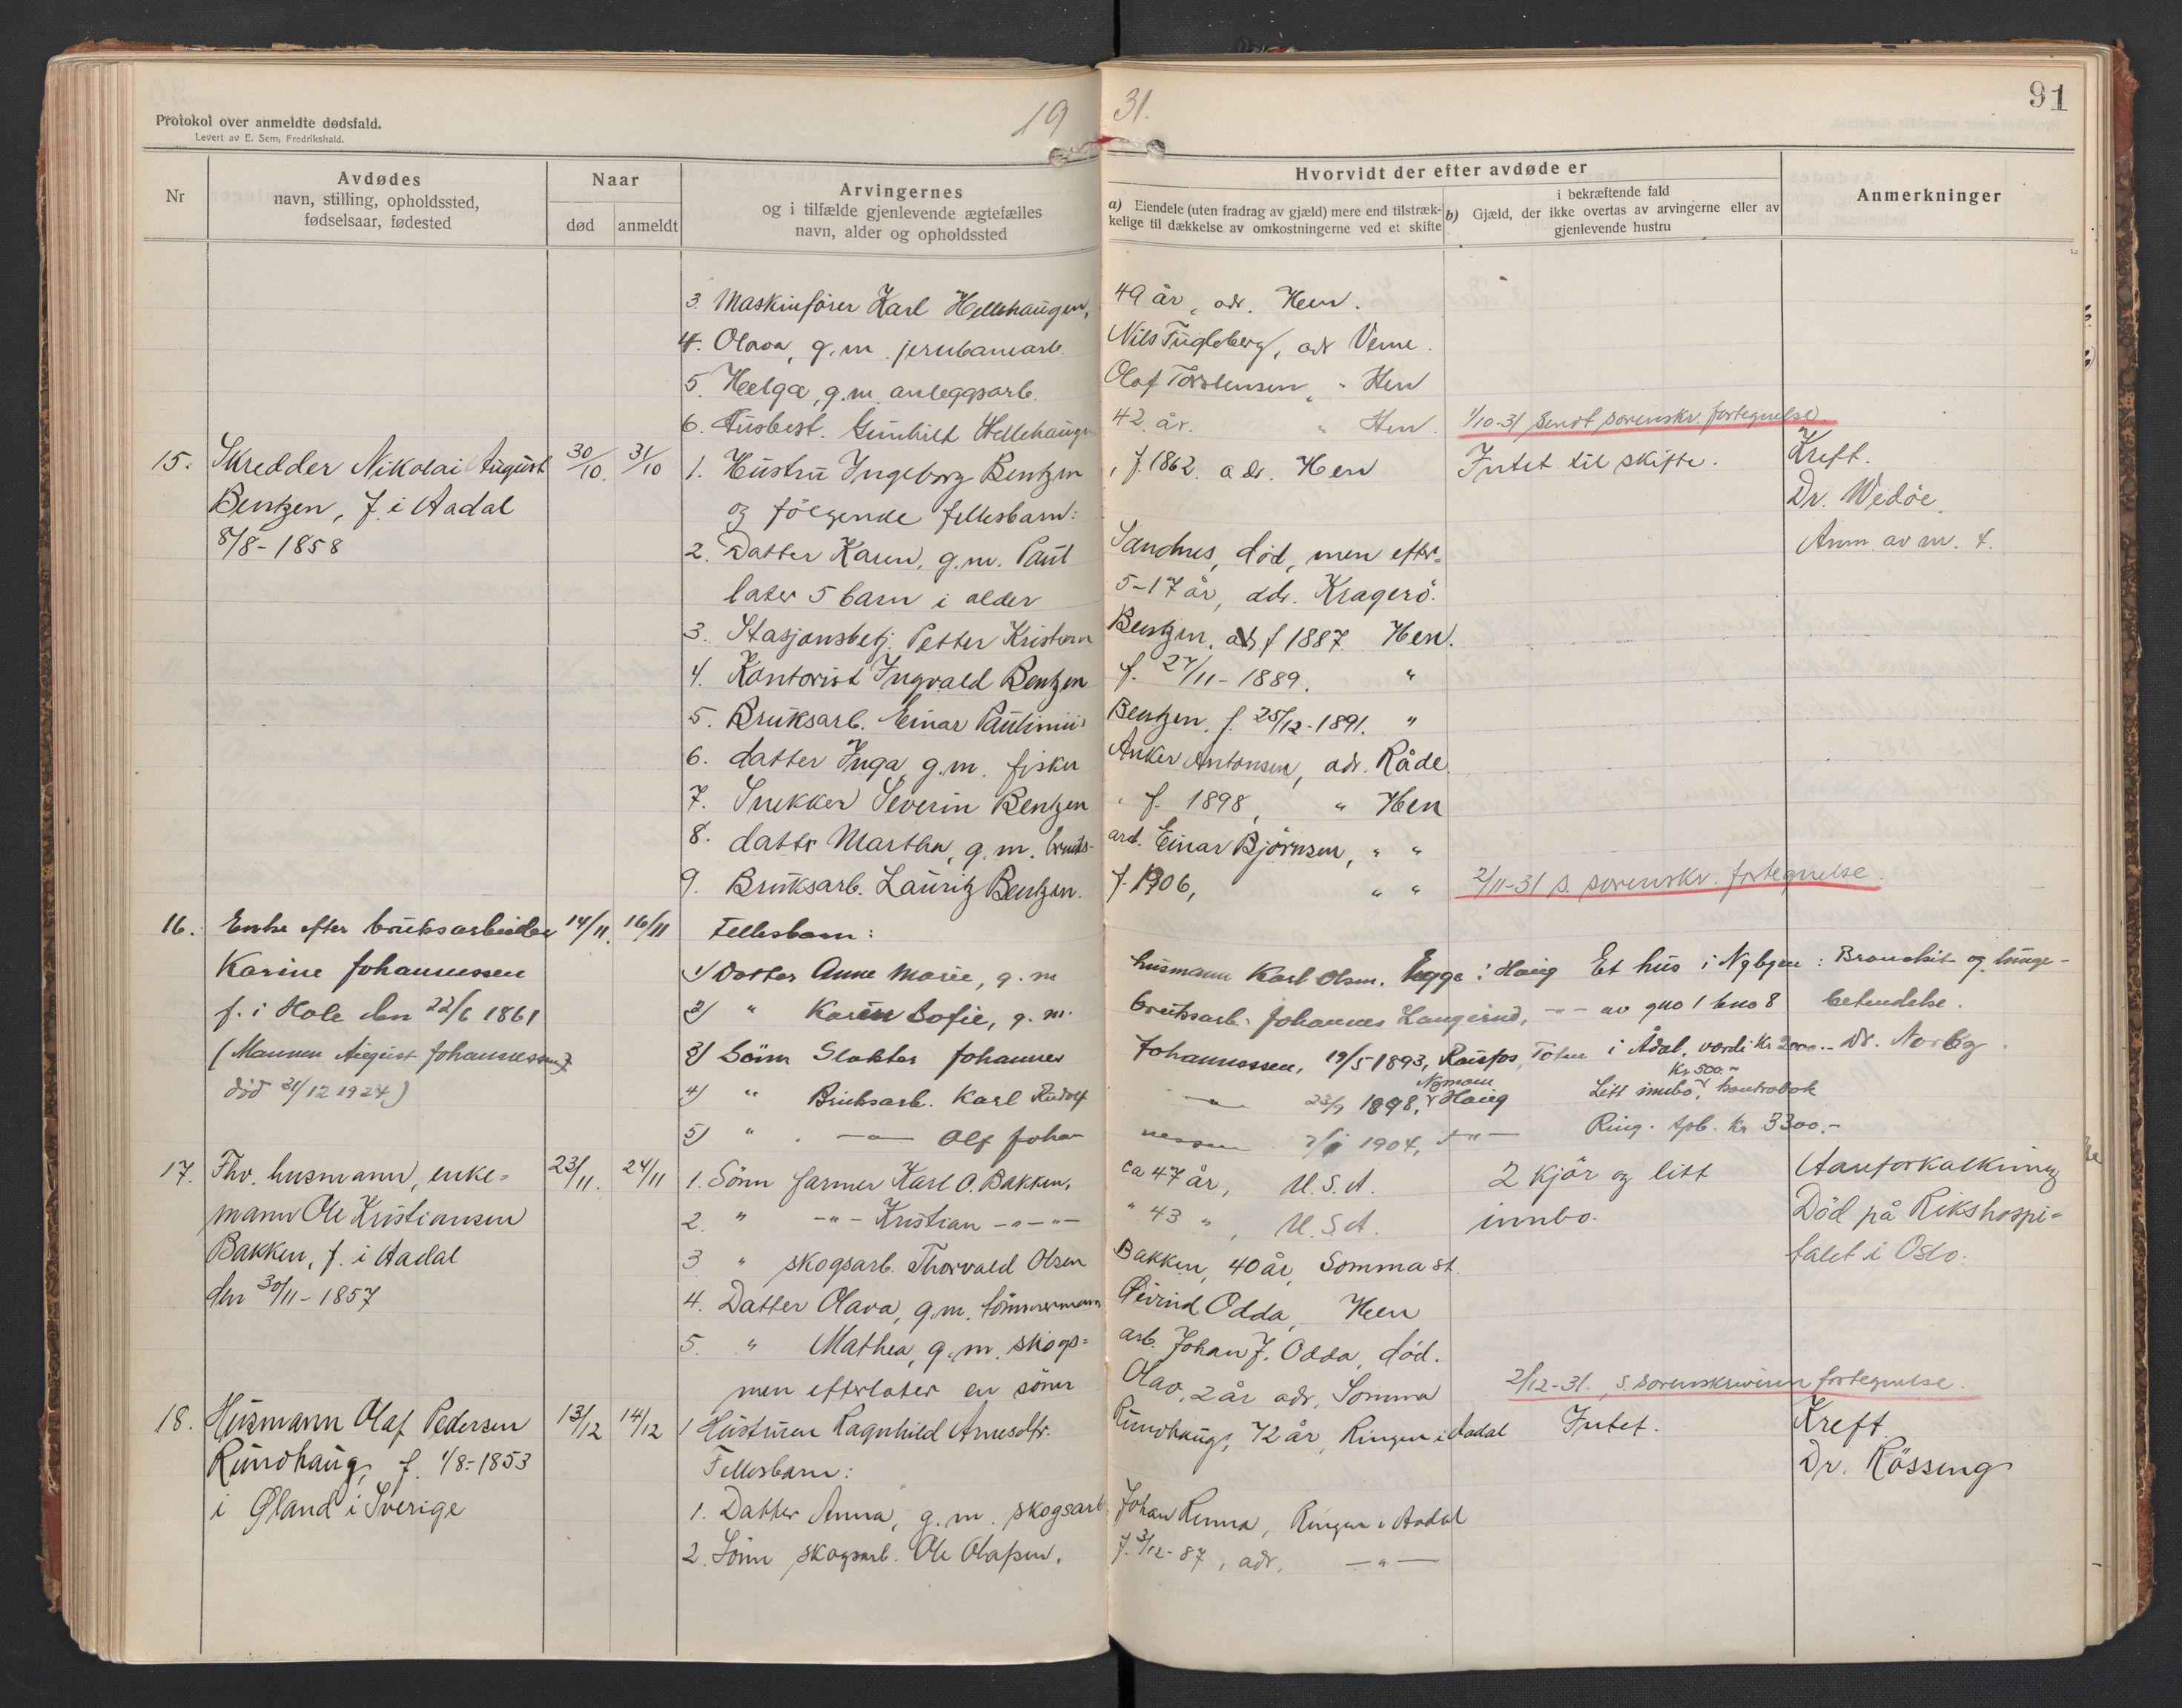 Protokol over anmeldte dødsfald.
Levert av E. Sem, Fredrikshald.
19 31.
91
Nr
Avdødes
navn, stilling, opholdssted,
fødselsaar, fødested
Naar
død anmeldt
Arvingernes
og i tilfælde gjenlevende ægtefælles
navn, alder og opholdssted
Hvorvidt der efter avdøde er
a) Eiendele (uten fradrag av gjæld) mere end tilstræk-
kelige til dækkelse av omkostningerne ved et skifte
i bekræftende fald
b) Gjæld, der ikke overtas av arvingerne eller av
gjenlevende hustru
Anmerkninger
3. Maskinfører Karl Hellehaugen, 49 år, adr. Hen.
4. Olava, g.m. jernbanearb. Nils Fugleberg, adr Veme.
5. Helga, g.m. anleggsarb. Olaf Torstensen, " Hen
6. Husbest. Gunhild Hellehaugen 42 år. " Hen. 1/10-31 sendt sorenskr. fortegnelse
15. Skredder Nikolai August 30/10. 31/10 1. Hustru Ingeborg Bentzen, f. 1862. adr. Hen Intet til skifte. Kreft.
Bentzen, f. i Aadal og følgende fellesbarn: Dr. Wedøe.
8/8-1858 2. Datter Karen, g.m. Paul Sandnes, død, men efter= Anm. av nr. 4.
later 5 barn i alder 5-17 år, adr. Kragerø.
3. Stasjonsbetj. Petter Kristian Bentzen, f 1887. Hen.
4. Kontorist Ingvald Bentzen f. 27/11-1889. "
5. Bruksarb. Einar Paulinius Bentzen, f. 25/12-1891. "
6. datter Inga, g.m. fisker Anker Antonsen, adr. Råde.
7. Snekker Severin Bentzen, f. 1898, " Hen
8. datter Martha, g.m. bruks- arb. Einar Bjørnsen, " "
9. Bruksarb. Lauritz Bentzen. f. 1906, " " 2/11-31 s. sorenskr. fortegnelse.
16. Enke efter bruksarbeider 14/11. 16/11 Fellesbarn:
Karine Johannessen 1/ Datter Anne Marie, g.m husmann Karl Olsen. Egge i Haug Et hus i Nybyen : Bronchit og lunge-
f. i Hole den 22/6 1861 2) " Karen Sofie, g.m. bruksarb. Johannes Langerud, - " - av gno 1 bno 8 betendelse.
(Mannen August Johannessen 3) Sønn Slakter Johannes Johannessen, 19/5 1893, Raufos, Toten i Ådal, værdi Kr 2000.- Dr. Norby.
død 31/12 1924) 4) " Bruksarb. Karl Rudolf - " - 23/9 1898, Nymoen Haug Litt innbo, Kr 500.- kontrabok
5) " . - " - Olf Johan nessen 1904, - " - Ring. spb. Kr 3300.-
17. Fhv. husmann, enke= 23/11. 24/11 1. Sønn farmer Karl O. Bakken. ca 47 år, U.S.A. 2 kjør og litt Aareforkalkning
mann Ole Kristiansen 2. " - " - Kristian - " - " - " 43 ", U.S.A. innbo. Død på Rikshospi=
Bakken, f. i Aadal 3 " skogsarb. Thorvald Olsen Bakken, 40 år, Somma st. talet i Oslo.
den 30/11-1857 4. Datter Olava, g.m. tømmermann Øivind Odda, Hen
5. " Mathea, g.m. skogs= arb. Johan J. Odda, død.
men efterlater en sønn Olav, 2 år adr. Somma 2/12-31. s. sorenskriveren fortegnelse.
18. Husmann Olaf Pedersen 13/12 14/12 1 Hustruen Ragnhild Arnesdtr. Rundhaug, 72 år, Ringen i Aadal Intet. Kreft.
Rundhaug, f. 1/8-1853 Fellesbarn: Dr. Røssing
i Øland i Sverige 1. Datter Anna, g.m. skogsarb. Johan Renna, Ringen i Aadal
2. Sønn skogsarb. Ole Olafsen, f. 3/12-87, adr. - " -